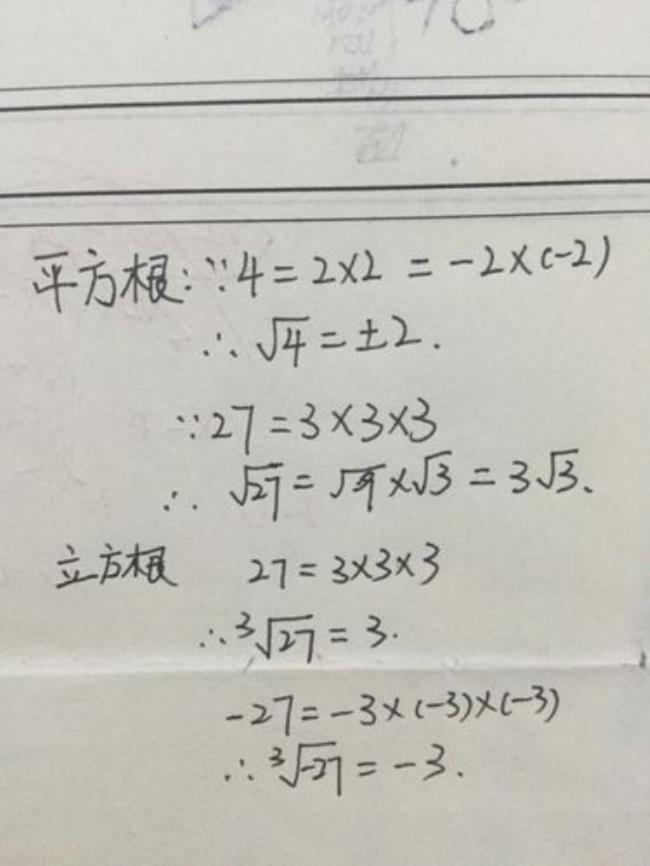 平方根:∵4=2×2=-2×(-2)
∴√4=±2.
∵27=3×3×3
∴√27=√9×√3=3√3、
立方根 27=3×3×3
∴³√27=3.
-27=-3×(-3)×(-3)
∴³√-27=-3.